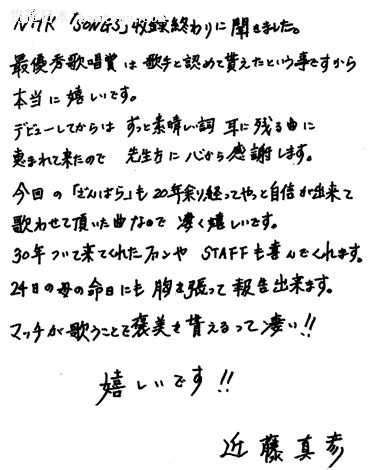 NHK「SONGS」収録終わりに聞きました。
最優秀歌唱賞は歌手と認めて貰えたという事ですから
本当に嬉しいです。
デビューしてからは ずっと素晴しい詞 耳に残る曲に
恵まれて来たので 先生方に心から感謝します。
今回の「ざんばら」も20年余り経ってやっと自信が出来て
歌わせて頂いた曲なので 凄く嬉しいです。
30年ついて来てくれたファンや STAFFも喜んでくれます。
24日の母の命日にも 胸を張って報告出来ます。
マッチが歌うことで褒美を貰えるって凄い!!
嬉しいです!!
近藤真彦